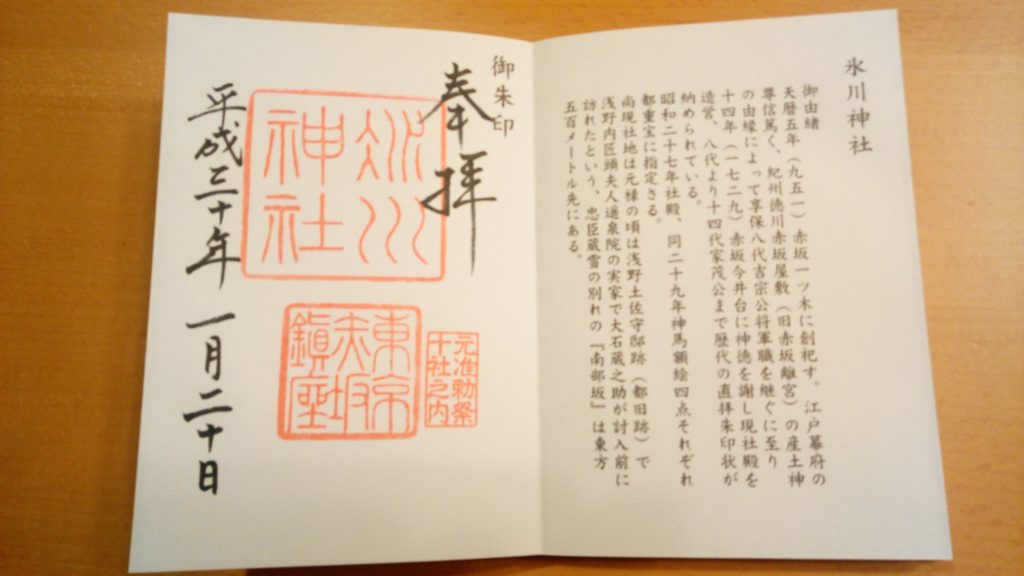 氷川神社
御由緒
天暦五年（九五一）赤坂一ツ木に創祀す。江戸幕府の
尊信篤く、紀州徳川赤坂屋敷（旧赤坂離宮）の産土神
の由縁によって享保八代吉宗公将軍職を継ぐに至り
十四年（一七二九）赤坂今井台に神徳を謝し現社殿を
造営、八代より十四代家茂公まで歴代の直拝朱印状が
納められている。
昭和二十七年社殿、同二十九年神馬額絵四点それぞれ
都重宝に指定さる。
尚現社地は元禄の頃は浅野土佐守邸跡（都旧跡）で
浅野内匠頭夫人遥泉院の実家で大石蔵之助が討入前に
訪れたという、忠臣蔵雪の別れの『南部坂』は東方
五百メートル先にある。
御朱印
奉拝
氷川神社
元准勅祭
十社之内
東京
赤坂
鎮座
平成三十年一月二十日